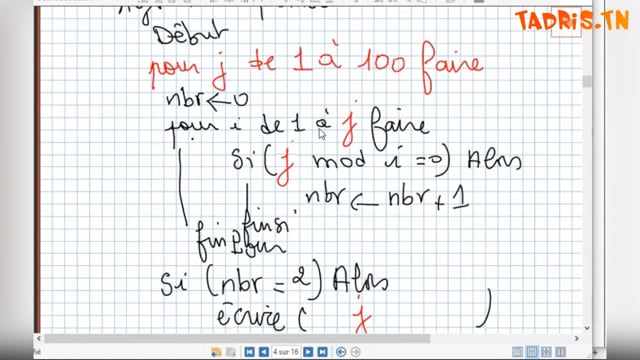 TADRIS.TN
Début
pour j de 1 à 100 faire
nbr ← 0
pour i de 1 à j faire
Si (j mod i = 0) Alors
nbr ← nbr + 1
finsi
finPour
Si (nbr = 2) Alors
écrire ( j )
4 sur 16